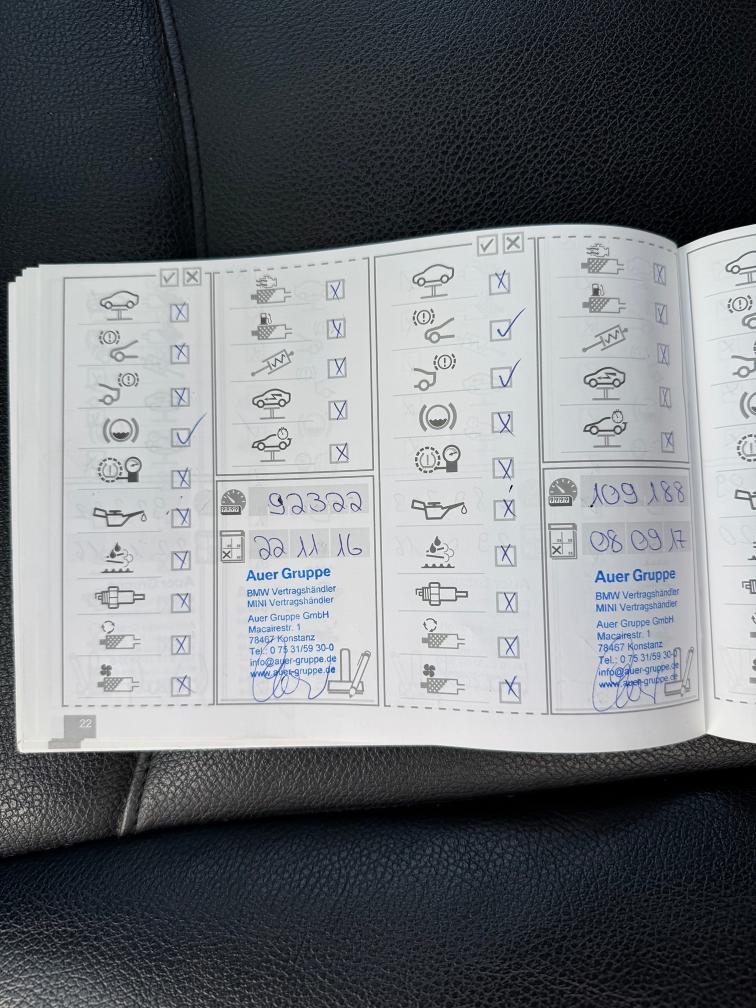 92322
22 11 16
Auer Gruppe
BMW Vertragshändler
MINI Vertragshändler
Auer Gruppe GmbH
Macairestr. 1
78467 Konstanz
Tel.: 0 75 31/59 30-0
info@auer-gruppe.de
www.auer-gruppe.de
22
109 188
08 09 17
Auer Gruppe
BMW Vertragshändler
MINI Vertragshändler
Auer Gruppe GmbH
Macairestr. 1
78467 Konstanz
Tel.: 0 75 31/59 30-0
info@auer-gruppe.de
www.auer-gruppe.de